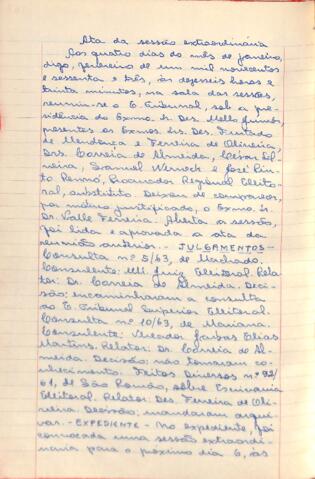 Ata da sessão extraordinária
Aos quatro dias do mês de janeiro,
digo, fevereiro de um mil novecentos
e sessenta e três, às dezesseis horas e
trinta minutos, na sala das sessões,
reuniu-se o E. Tribunal, sob a pre-
sidência do Exmo. Sr. Des. Mello Júnior,
presentes os Exmos. Srs. Des. Furtado
de Mendonça e Ferreira de Oliveira,
Drs. Correia de Almeida, Cesar Sil-
veira, Samuel Werneck e José Pin-
to Renó, Procurador Regional Eleito-
ral, substituto. Deixou de comparecer,
por motivo justificado, o Exmo. Sr.
Dr. Valle Ferreira. Aberta a sessão,
foi lida e aprovada a ata da
reunião anterior. - JULGAMENTOS -
Consulta nº 5/63, de Machado.
Consulente: MM. Juiz Eleitoral. Rela-
tor: Dr. Correia de Almeida. Deci-
são: encaminharam a consulta
ao E. Tribunal Superior Eleitoral.
Consulta nº 10/63, de Mariana.
Consulente: Vereador Jarbas Elias
Martins. Relator: Dr. Correia de Al-
meida. Decisão: não tomaram co-
nhecimento. Feitos Diversos nº 92/
61, de São Romão, sobre Escrivania
Eleitoral. Relator: Des. Ferreira de Oli-
veira. Decisão: mandaram arqui-
var. - EXPEDIENTE - No expediente, foi
convocada uma sessão extraordi-
nária para o próximo dia 6, às